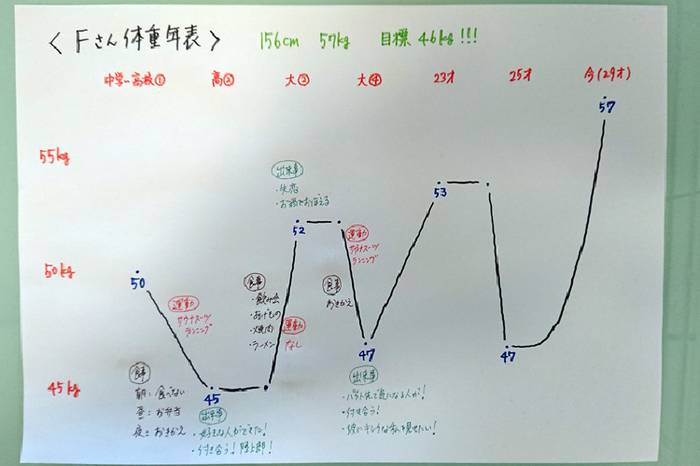 〈 Fさん体重年表 〉 156cm 57kg 目標 46kg!!!
中学〜高校① 高② 大③ 大④ 23才 25才 今(29才)
57
55kg
出来事
・失恋
・お酒でお
53
52
運動
サウナスーツ
ランニング
50kg
50
食事
・飲み会
・あげもの
・焼肉
・ラーメン
運動
なし
食事
おきかえ
運動
サウナスーツ
ランニング
47
47
45kg
45
食事
朝: 食べない
昼: お弁当
夜: おきかえ
出来事
・好きな人ができた!
・付き合う! 陸上部!
出来事
・バイト先で気になる人が!
・付き合う!
・彼にキレイな私を見せたい!